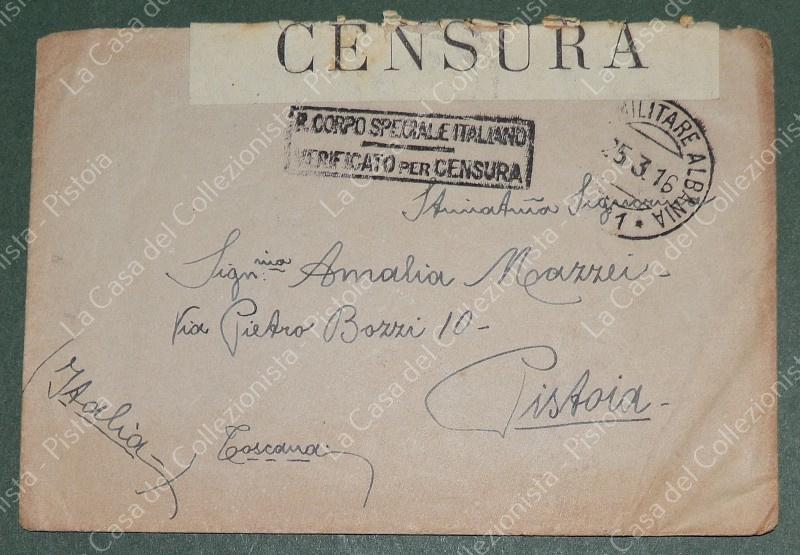 CENSURA
R. CORPO SPECIALE ITALIANO
VERIFICATO PER CENSURA
MILITARE ALBANIA
25.3.16
1 *
Stimatma Signorina
Sign.ina Amalia Mazzei -
Via Pietro Bozzi 10 -
Pistoia -
(Italia -)
Toscana -
La Casa del Collezionista - Pistoia